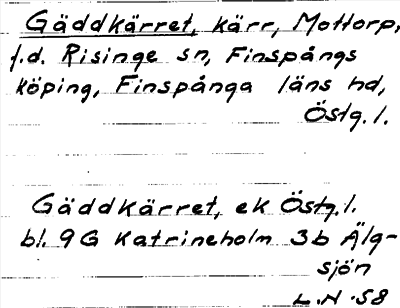 Gäddkärret, kärr, Mottorp,
f.d. Risinge sn, Finspångs
köping, Finspånga läns hd,
Östg. l.
Gäddkärret, ek Östg. l.
bl. 9G Katrineholm 3b Älg-
sjön
L.N. 58